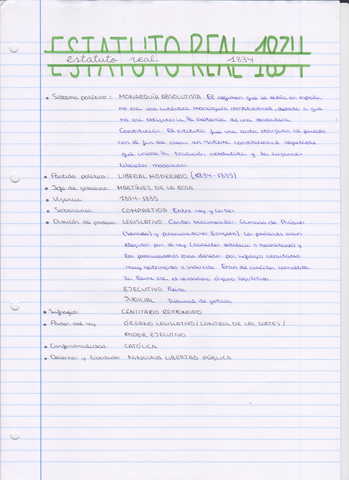 ESTATUTO REAL 1834
estatuto real 1834
• Sistema político: MONARQUÍA ABSOLUTISTA El régimen que se [...] en España
no era una auténtica monarquía constitucional, debido a que
no era obligatoria la existencia de una verdadera
Constitución. El estatuto fue una carta otorgada al pueblo
con el fin de crear un sistema constitucional
que uniese la tradición absolutista y la
liberales moderadas.
• Partido político: LIBERAL MODERADO (1834-1835)
• Jefe de gobierno: MARTÍNEZ DE LA ROSA
• Vigencia: 1834-1835
• Soberanía: COMPARTIDA Entre rey y cortes
• División de poderes: LEGISLATIVO Cortes bicamerales: Cámara de Próceres
(Senado) y procuradores (Congreso) Los próceres eran
elegidos por el rey (carácter vitalicio o hereditario) y
los procuradores eran elegidos por sufragio censitario
muy restringido e indirecto. Eran de carácter consultivo,
la Reina era el verdadero órgano legislativo.
EJECUTIVO Reina
JUDICIAL Tribunal de justicia
• Sufragio: CENSITARIO RESTRINGIDO
• Poder del rey ÓRGANO LEGISLATIVO/CONTROL DE LAS CORTES/
PODER EJECUTIVO
• Confesionalidad: CATÓLICA
• Derechos y libertades: NINGUNA LIBERTAD PÚBLICA